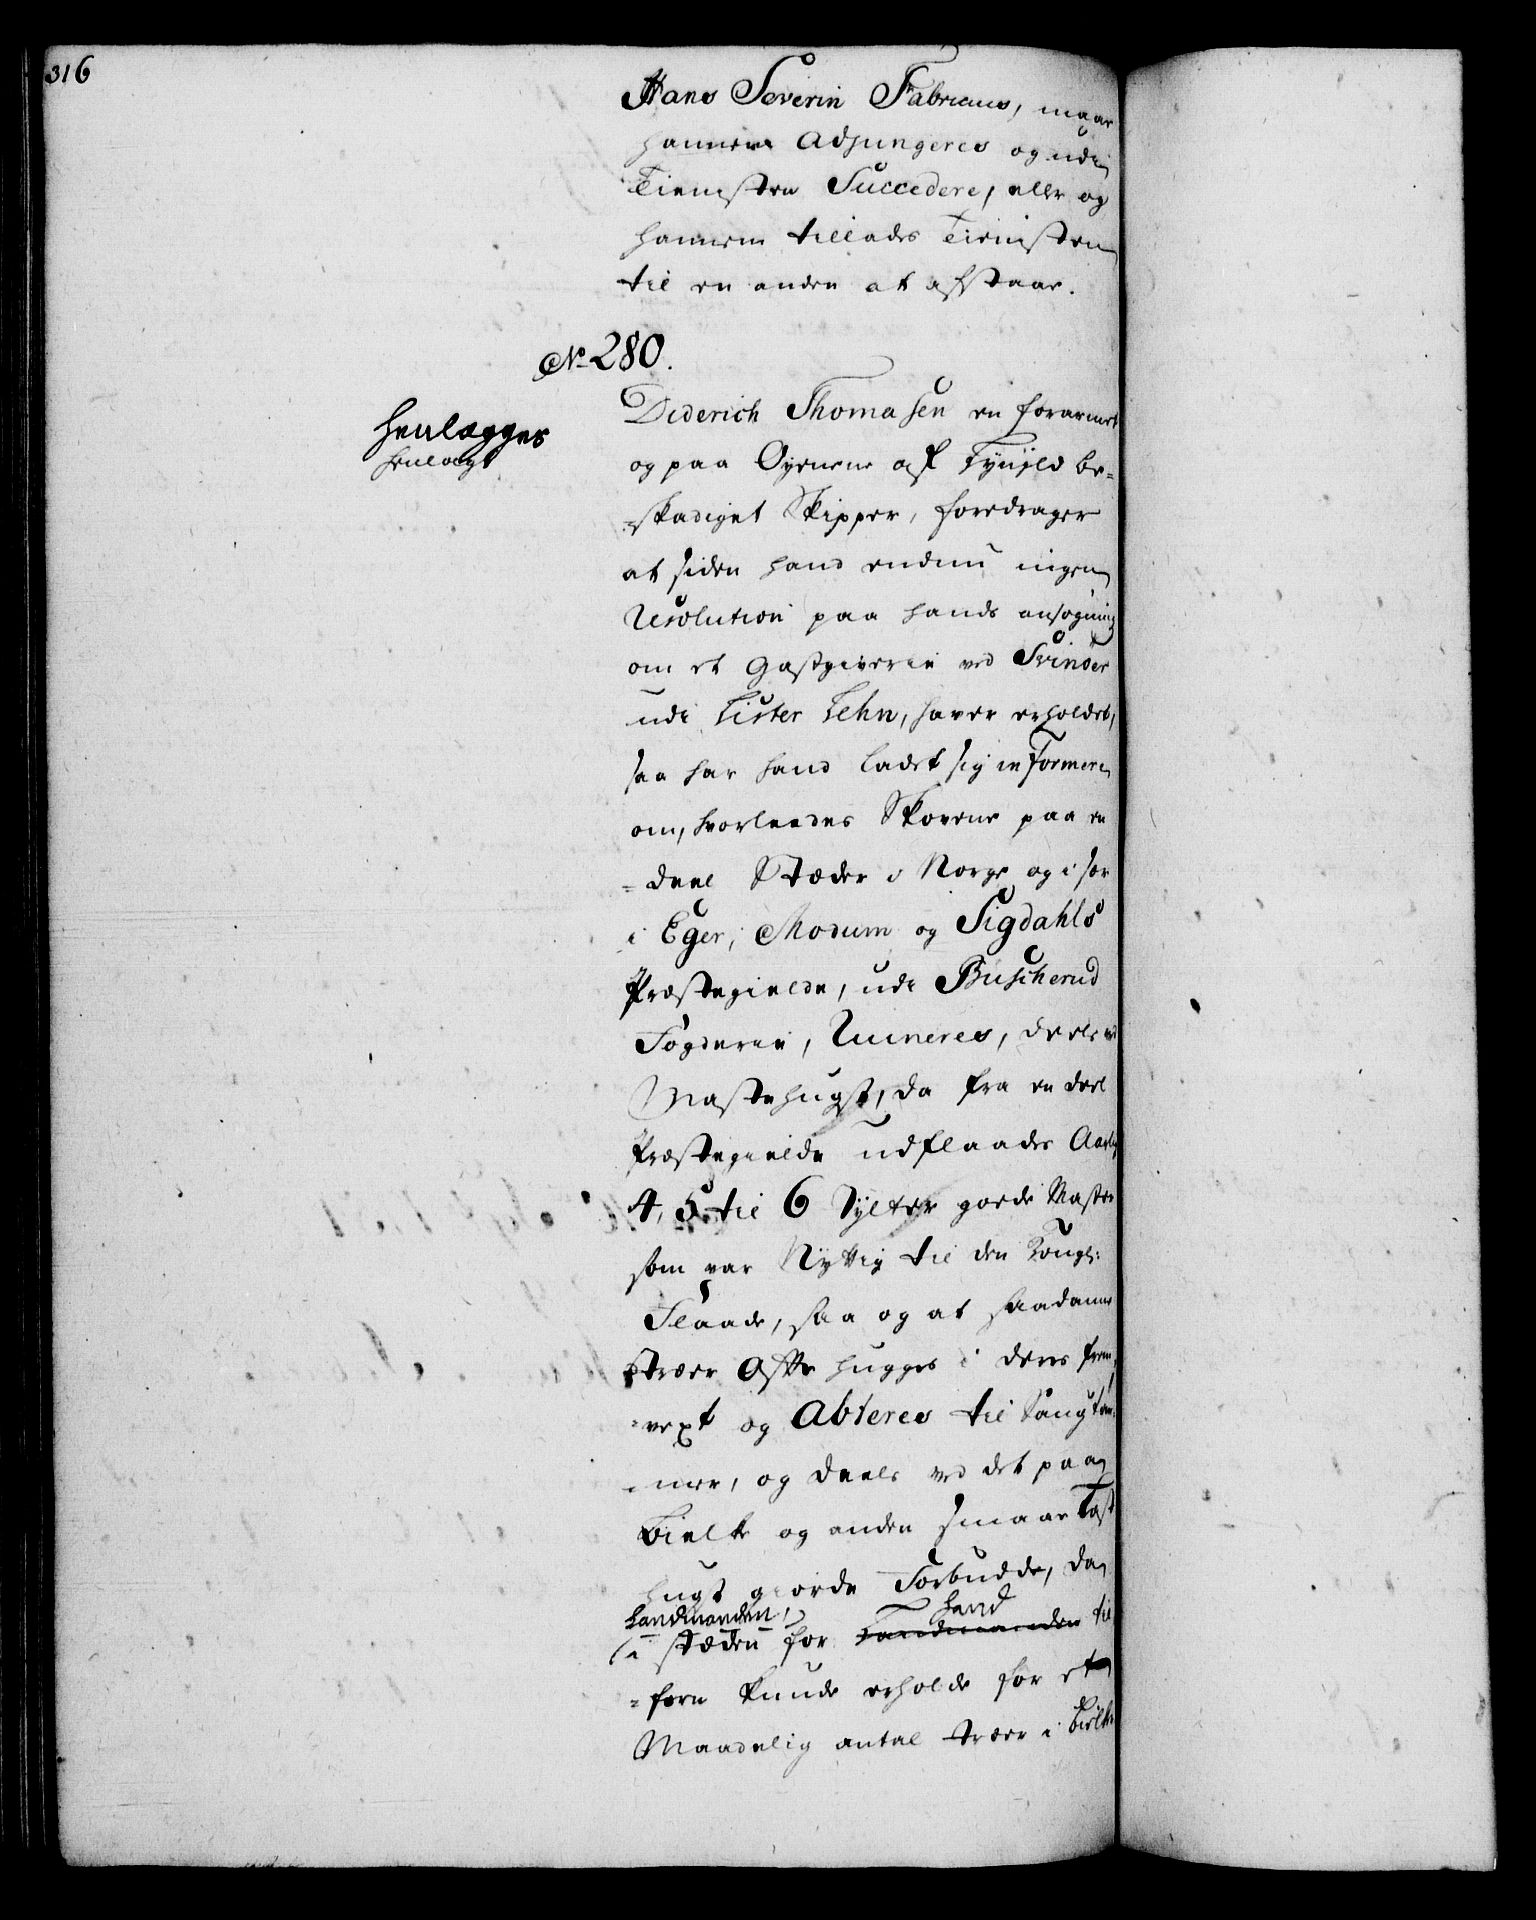 316
Hans Severin Fabricius, maae
hannem Adjungeres og udi
Tienisten Succedere, eller og
hannem tillades Tienisten
til en anden at afstaae.
No. 280.
henlægges
henlagt
Diderich Thomasen en forarmet
og paa Øynene af Fynild be=
=skadiget Skipper, foredrager
at siden hand endnu ingen
Resolution paa hands ansøgning
om et Gæstgiverie ved Svinöer
udi Lister Lehn, haver erholdet,
saa har hand ladet sig informere
om, hvorleedes Skovene paa en
=deel Stæder i Norge og i sær
i Eger, Modum og Sigdahls
Præstegielde, udi Buscherud
Fogderie, Ruineres, deels ved
Mastehugst, da fra en deel
Præstegielde udflaades Aarlig
4, 5 til 6 Tylter goede Master
som var Nyttig til den Kongl:
Flaade, saa og at saadanne
træer Ofte hugges i deres frem
=vext og Abteres til Saugtøm:
=mer, og deels ved det paa
Bielke og anden smaae Last
hugst giorde Forbudde, da
Landmanden, hand
i stæden for Landmanden til
=forn kunde erholde for et
Maadelig antal træer i Bielke